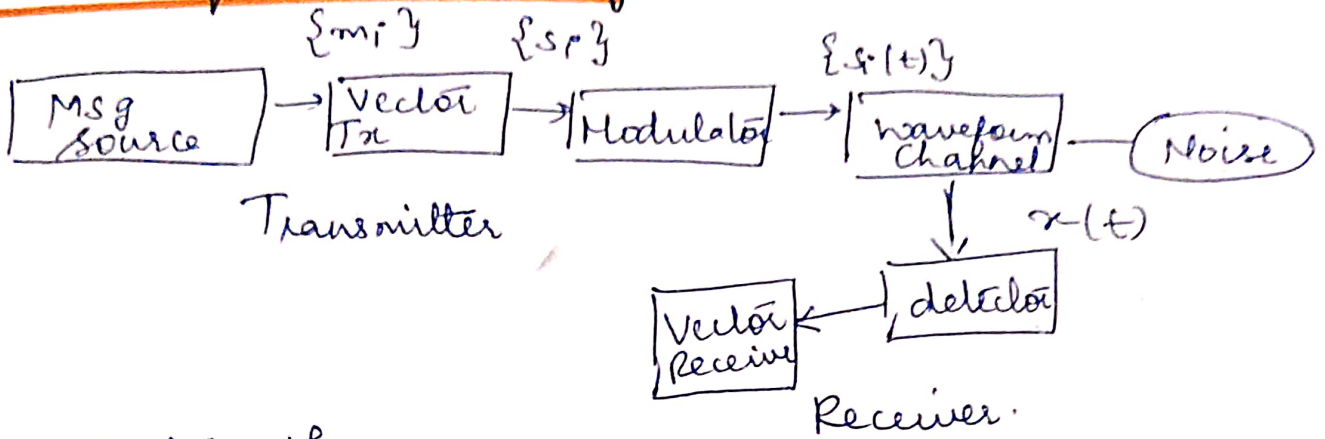 {mi} {si} {si(t)}
Msg Source
Vector Tx
Modulator
Waveform Channel
Noise
Transmitter
x(t)
detector
Vector Receive
Receiver.